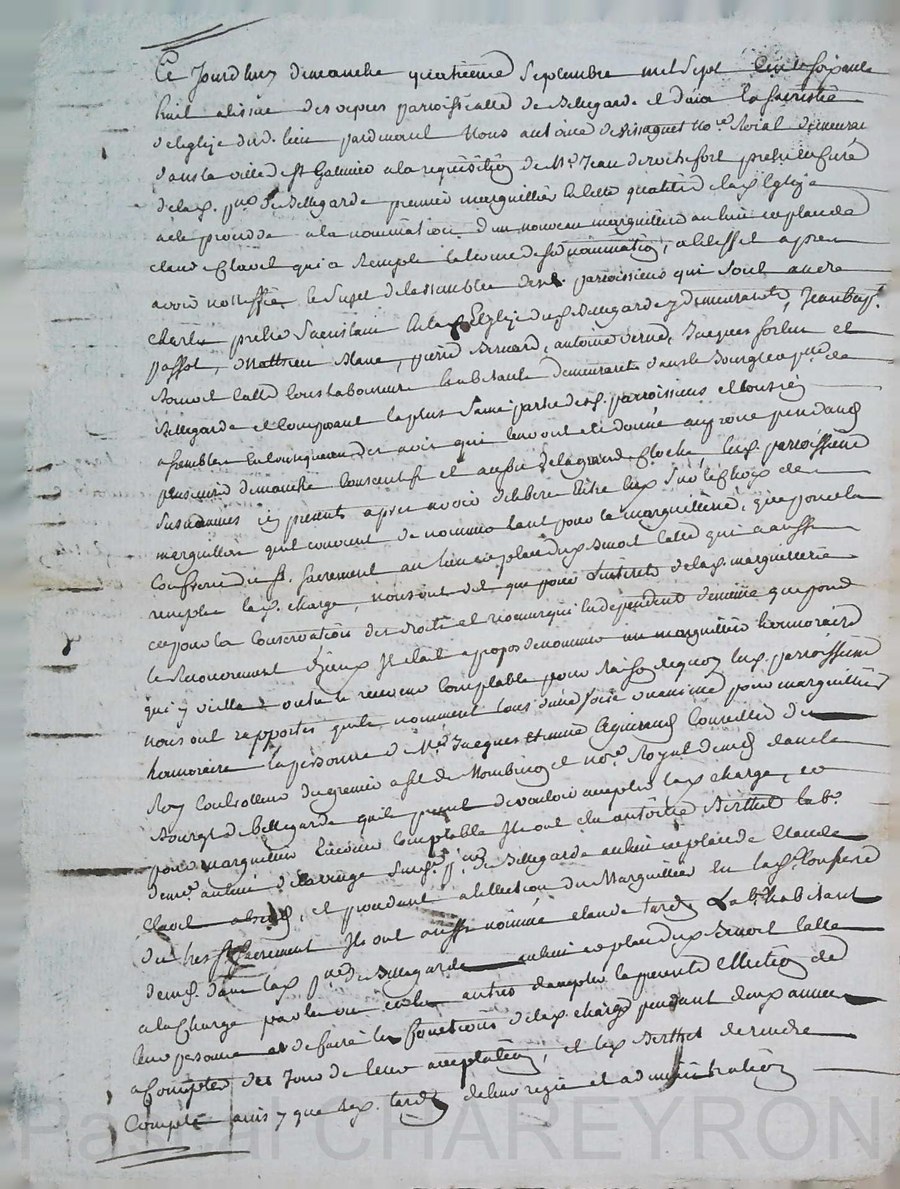 Ce Jourdhuy dimanche quatrieme Septembre mil Sept Cent soixante
huit a lissüe des vepres parroissialles de Bellegarde et dans la Sacristie
de leglise dud. lieu pardevant Nous antoine de no.re Roial demeurant
dans la ville de St Galmier a la requisition de Mr. Jean de rochefort pretre Curé
de lad. p.sse de Bellegarde premier marguillier en cette qualité de lad. Eglise
a été procedé a la nomination d'un nouveau marguillier au lieu et place de
claude Clavel qui a remply le terme de sa nomination, a leffet apres
avoir nottiffié le Sujet de lassemblée desd. parroissiens qui sont andre
Charles pretre Sacristain de lad. Eglise dud. Bellegarde y demeurant, Jean Bap.t
passot, Matthieu Blanc, pierre Bernard, antoine Verne, Jacques et
Benoit Latté tous laboureurs habitants demeurants dans le Bourg et p.sse de
Bellegarde et Composant la plus Saine partie desd. parroissiens
assemblés en Consequence des avis qui leur ont été donné au prone pendant
plusieurs dimanches Consecutifs et au son de la grande Cloche lesd. parroissiens
Susnommés icy presents apres avoir deliberé entre eux Sur le choix de
marguillier quil convient de nommer tant pour la marguillerie, que pour la
Confrerie du St. Sacrement au lieu et place dud. Benoit Latté qui a aussi
remply lad. charge, nous ont dit que pour linterets de lad. marguillerie
et pour la Conservation des droits et qui en dependent de meme que pour
le Recouvrement diceux Il etait a propos de nommer un marguillier honnoraire
qui y veille outre le receveur Comptable pour raison de quoy lesd. parroissiens
nous ont rapportés quils nomment tous dune voix unanime pour marguillier
honnoraire la personne de Mr. Jacques Etienne Conseiller du
Roy Controlleur du grenier a sel de Monbrison et no.re Royal demt dans le
Bourg de Bellegarde quils prient de vouloir accepter lad. charge, et
pour marguillier Receveur Comptable Ils ont élu antoine Berthet lab.r
demt. au lieu de p.sse de Bellegarde au lieu et place de Claude
Clavel absent, et procedant a lellection du Marguillier en lad. Confrerie
du tres St Sacrement Ils ont aussi nommé claude tardy Lab.r habitant
demt. dans lad. p.sse de Bellegarde au lieu et place dud. Benoit Latté
a la Charge par les uns et les autres daccepter la presente Ellection de
leur personne et de faire les fonctions de lad. charge pendant deux années
a Compter du Jour de leur acceptation, et led. Berthet de rendre
Compte ainsy que led. tardy de leur regie et administration
Pascal CHAREYRON